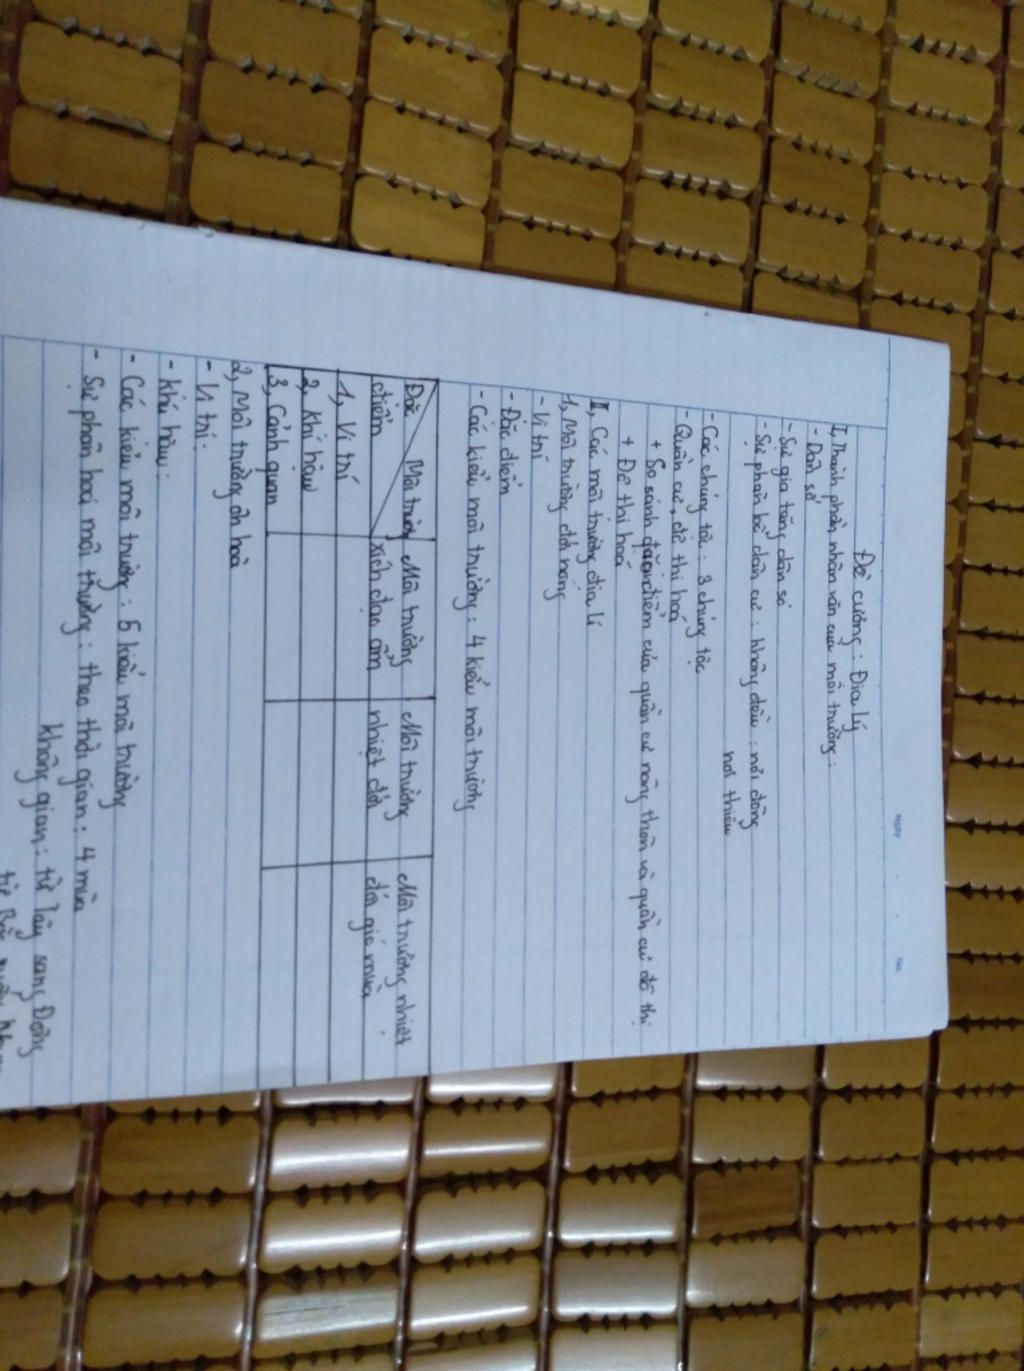 Ngày
No.
Đề cương: Địa lý
I, Thành phần nhân văn của môi trường:
- Dân số
- Sự gia tăng dân số
- Sự phân bố dân cư: không đều: nơi đông
nơi thiếu
- Các chủng tộc: 3 chủng tộc
- Quần cư, đô thị hoá
+ So sánh đặc điểm của quần cư nông thôn và quần cư đô thị
+ Đô thị hoá
II, Các môi trường địa lí
1, Môi trường đới nóng
- Vị trí
- Đặc điểm
- Các kiểu môi trường: 4 kiểu môi trường
Đặc điểm Môi trường
Môi trường xích đạo ẩm
Môi trường nhiệt đới
Môi trường nhiệt đới gió mùa
1, Vị trí
2, Khí hậu
3, Cảnh quan
2, Môi trường ôn hoà
- Vị trí:
- Khí hậu:
- Các kiểu môi trường: 5 kiểu môi trường
- Sự phân hoá môi trường: theo thời gian: 4 mùa
không gian: từ Tây sang Đông
từ Bắc